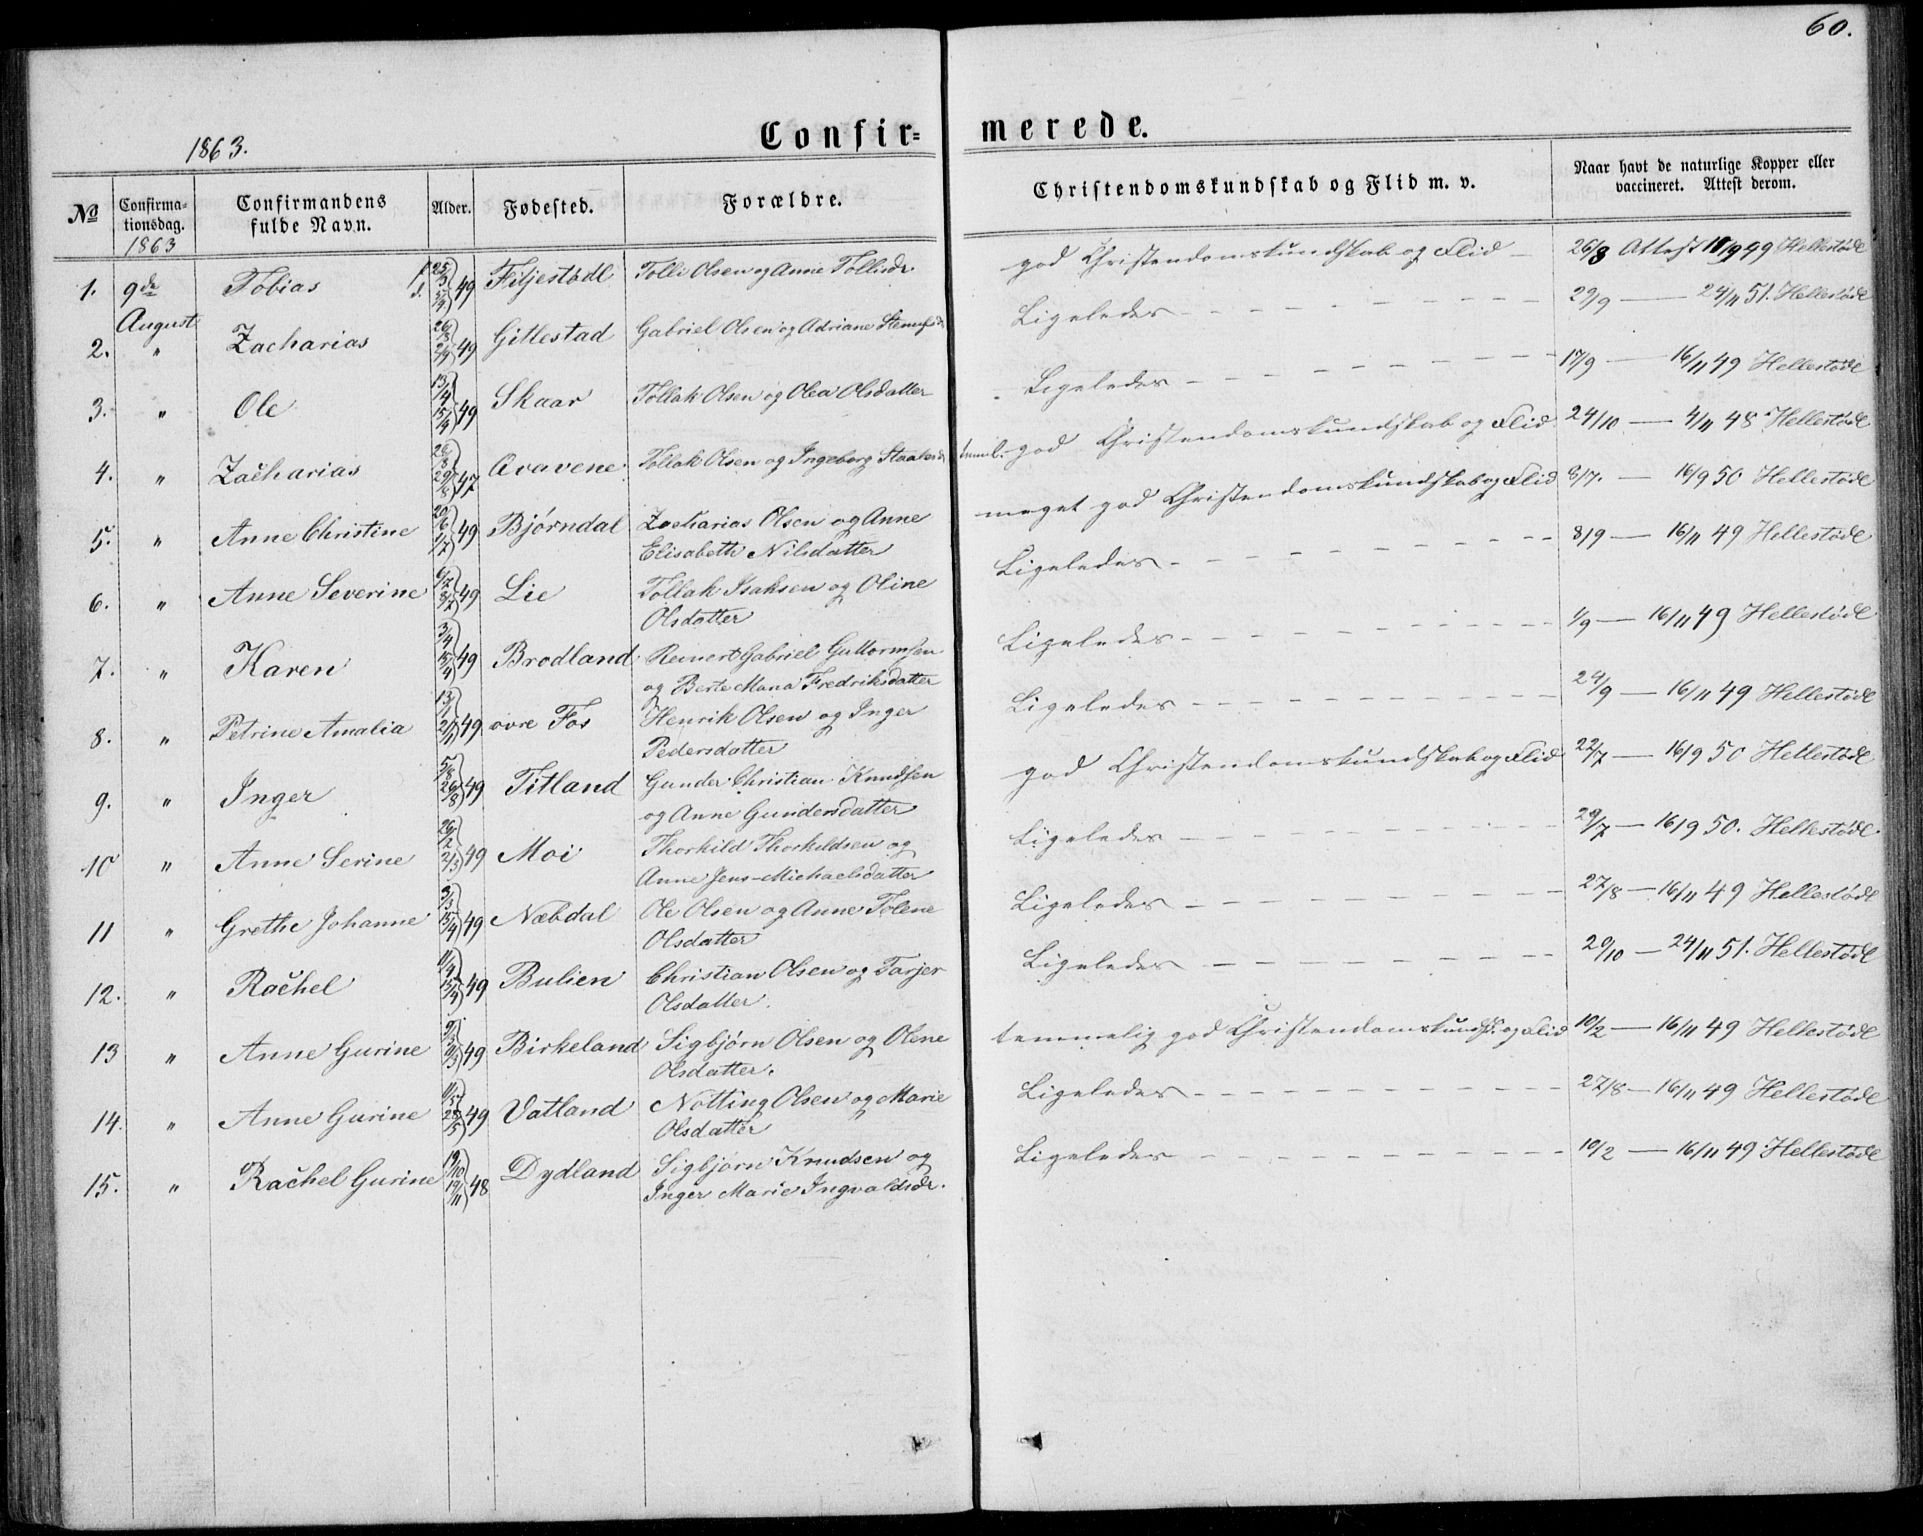 60.
1863.
Confir=merede.
No
Confirma-tionsdag.
Confirmandens fulde Navn.
Alder.
Fødested.
Forældre.
Christendomskundskab og Flid m. v.
Naar havt de naturlige Kopper eller vaccineret. Attest derom.
1863
1. 9de August Tobias f. d. 49 Fitjestødl Tolli Olsen og Anne Tollisdr. god Christendomskundskab og Flid 26/8 Attest 49 Hellestødl
2. " Zacharias 26/8 49 Gitlestad Gabriel Olsen og Adriane Ligeledes 29/9 — 24/11 51. Hellestødl
3. " Ole 13/4 15/4 49 Skaar Tollak Olsen og Olea Olsdatter Ligeledes 17/9 — 16/11 49 Hellestødl
4. " Zacharias 47 Aavavene Tollak Olsen og Ingeborg teml. god Christendomskundskab og Flid 24/10 — 4/11 48 Hellestødl
5. " Anne Christine 20/6 1/7 49 Bjørndal Zacharias Olsen og Anne Elisabeth Nilsdatter meget god Christendomskundskab og Flid — 16/9 50 Hellestødl
6. " Anne Severine 49 Lie Tollak Isaksen og Oline Olsdatter Ligeledes 8/9 — 16/11 49 Hellestødl
7. " Karen 3/4 15/4 49 Brodland Reinert Gabriel Guttormsen og Berte Maria Fredriksdatter Ligeledes 1/9 — 16/11 49 Hellestødl
8. " Petrine Amalia 13/1 21/1 49 øvre Fos Henrik Olsen og Inger Pedersdatter Ligeledes 24/9 — 16/11 49 Hellestødl
9. " Inger 5/8 26/8 49 Titland Gunder Christian Knudsen og Anne Gundersdatter god Christendomskundskab og Flid 22/7 — 16/9 50 Hellestødl
10 " Anne Serine 26/2 2/3 49 Moi Thorkild Thorkildsen og Anne Jens-Michaelsdatter Ligeledes 29/7 — 16/9 50. Hellestødl.
11 " Grethe Johanne 15/4 49 Næbdal Ole Olsen og Anne Tolene Olsdatter Ligeledes 27/8 — 16/11 49 Hellestødl
12. " Rachel 15/4 49 Bulien Christian Olsen og Tarjer Olsdatter. Ligeledes 20/10 — 24/11 51. Hellestødl
13 " Anne Gurine 49 Birkeland Sigbjørn Olsen og Olene Olsdatter. temmelig god Christendomskundsk. og Flid 10/2 — 16/11 49 Hellestødl
14. " Anne Gurine 28/5 49 Vatland Notting Olsen og Marie Olsdatter Ligeledes 27/8 — 16/11 49 Hellestødl
15. " Rachel Gurine 19/10 19/11 48 Dydland Sigbjørn Knudsen og Inger Marie Ingvaldsdr. Ligeledes 10/2 — 16/11 49 Hellestødl